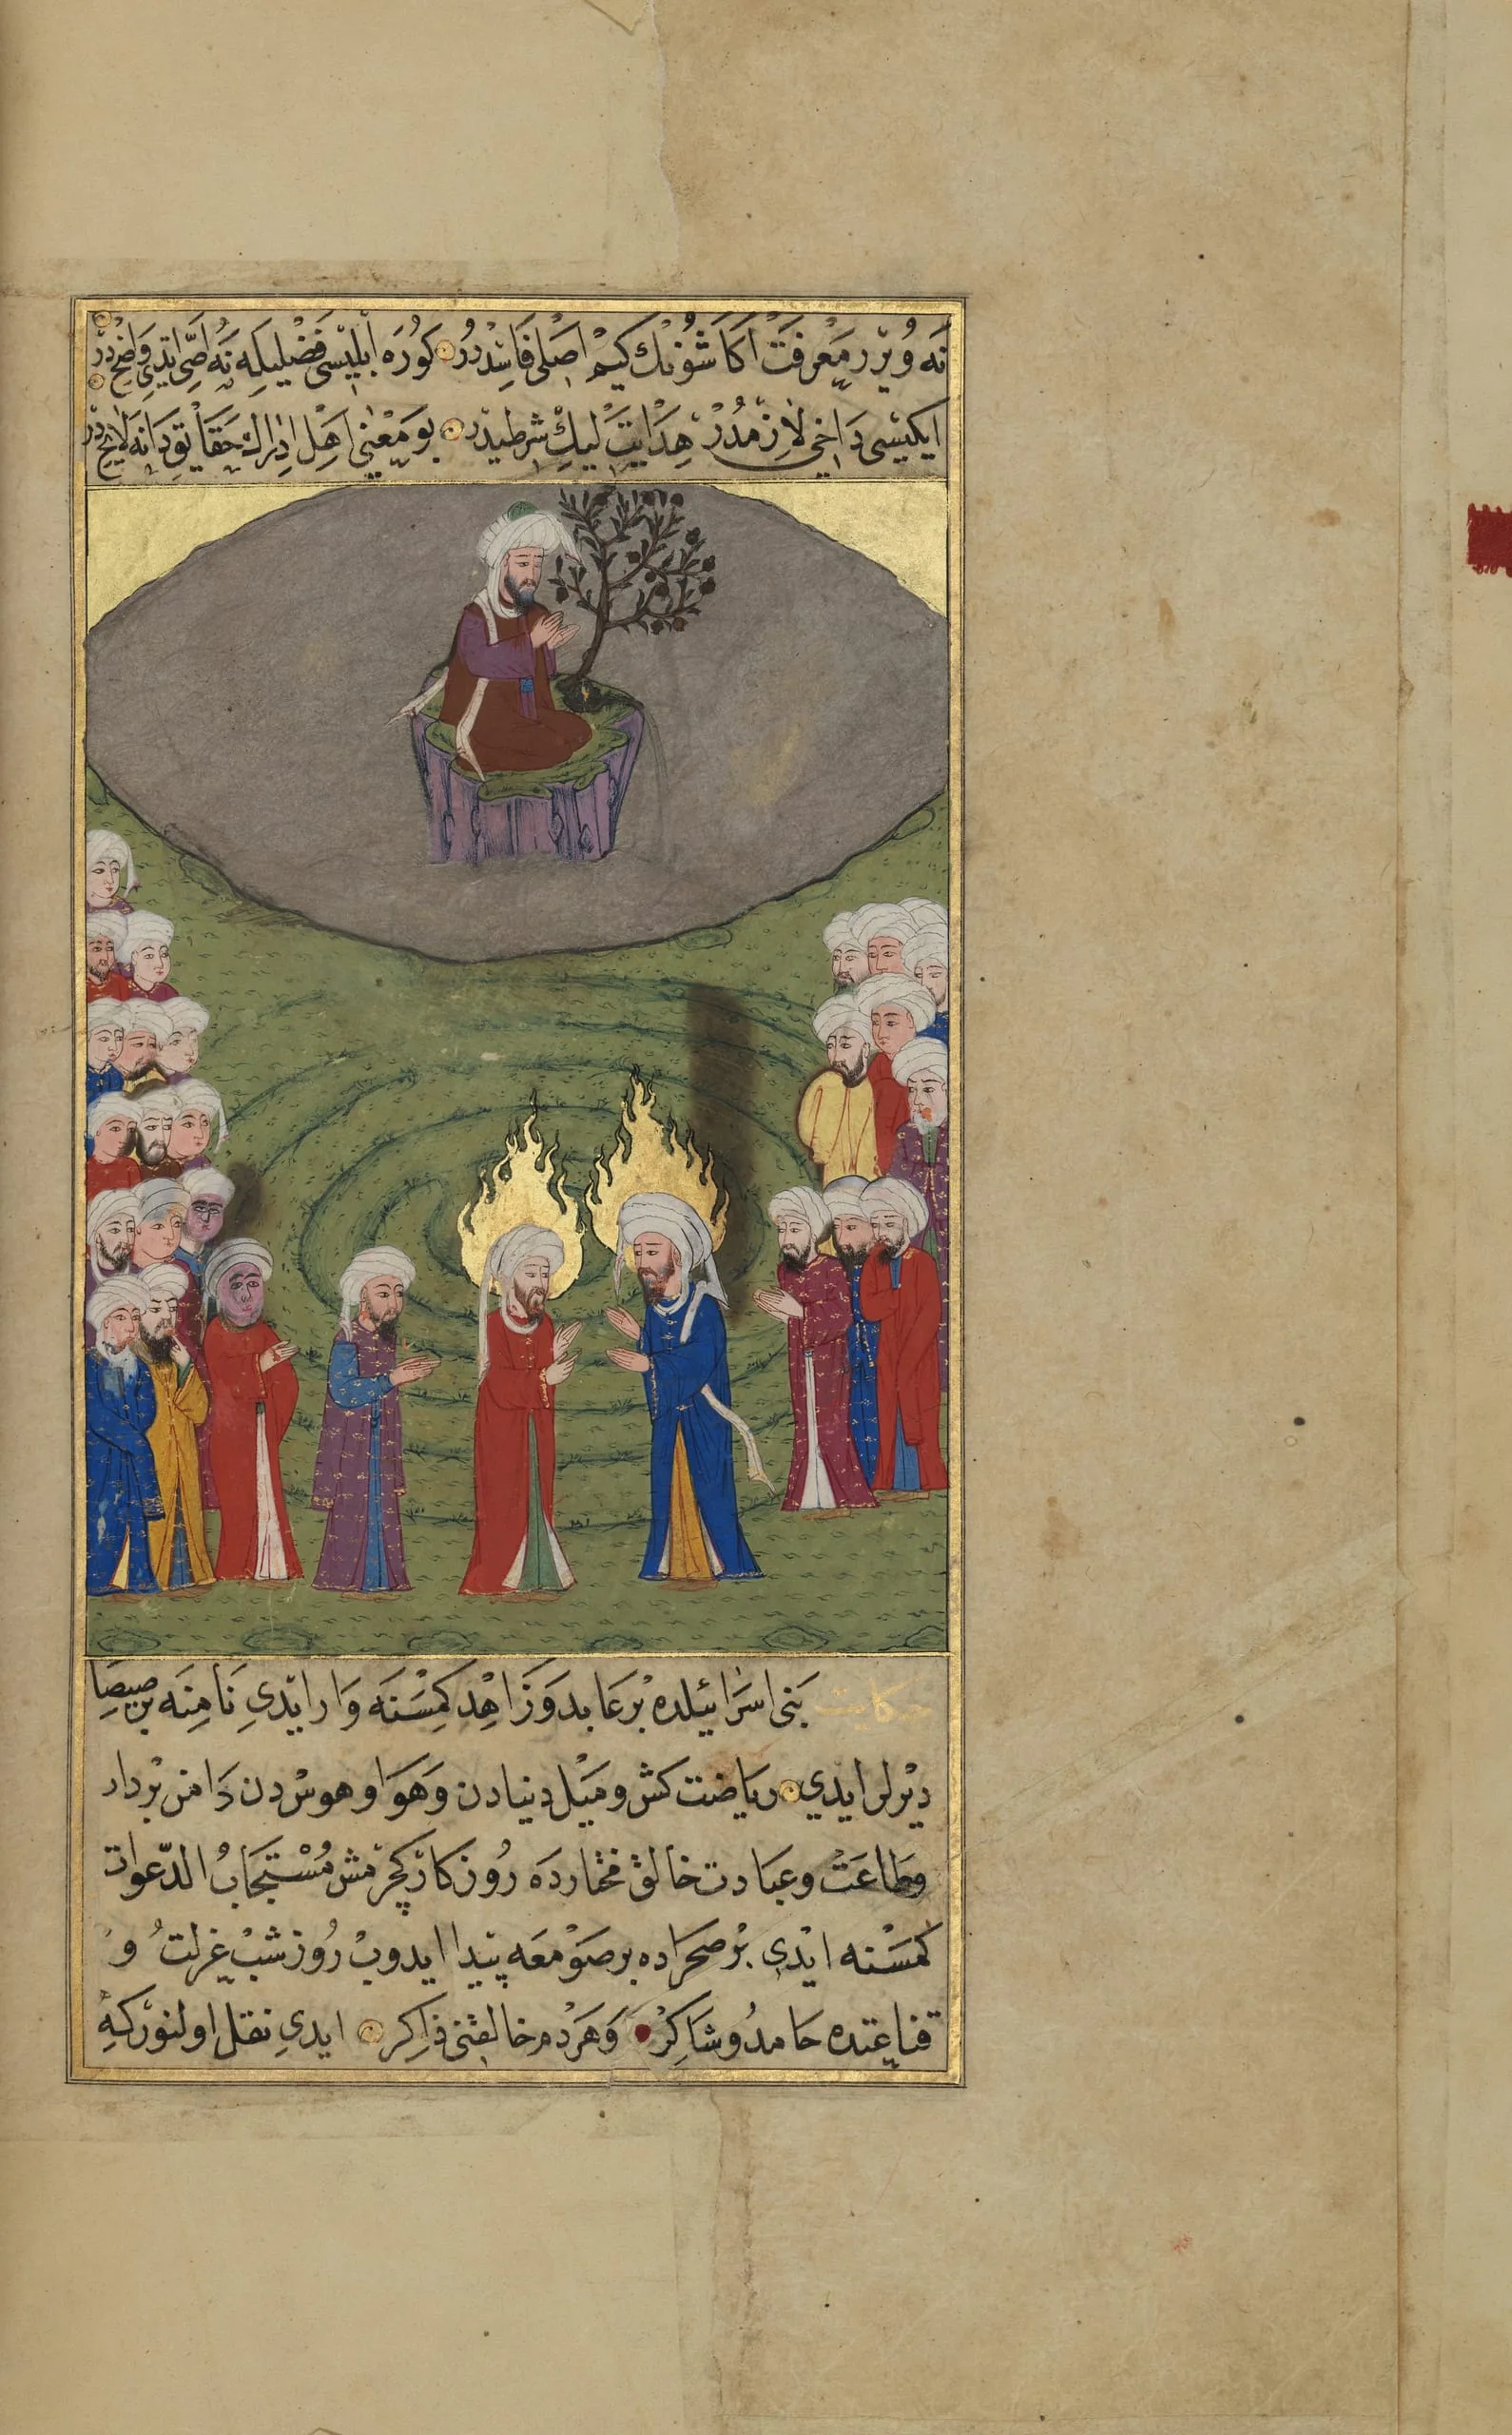 نَه وُيرر مَعْرِفَتْ اكَا شُونُك كِيمْ اصْلى فَاسِدْدُرْ كَوُرَه ابْلِيسى فَضْلِيلَه نَه اصِّى ايتدِي وَاضِحْدرْ
ايكيسى دَاخِي لَازِمْدُرْ هِدَايَتْ ليكْ شرطيدر بو مَعْنى اهْلِ ادْرَاك حَقَايقدَانَه لَايِحْدرْ
حكايت بَنى اسْرَائيلده بِرْ عَابد وَزَاهِد كِمْسَنَه وَار ايْدى نَامِنَه برصيصَا
ديْرلر ايدي رياضت كش و مَيْل دنيادن وَهَوَا و هوسْدن دَامن بَرْدار
وطَاعَتْ وعبَادت خالق مختارده رُوزكار كچُرمش مُسْتَجَابُ الدّعوات
كمَسْنه ايْدى بْر صحَراده بر صَوْمَعَه پَيدا ايدوبْ رُوز شبْ عُزلتْ و
قناعتده حَامدُ وشَاكِرْ وَهَرْدم خالقنى ذاكِر ايدى نقل اولنور كه